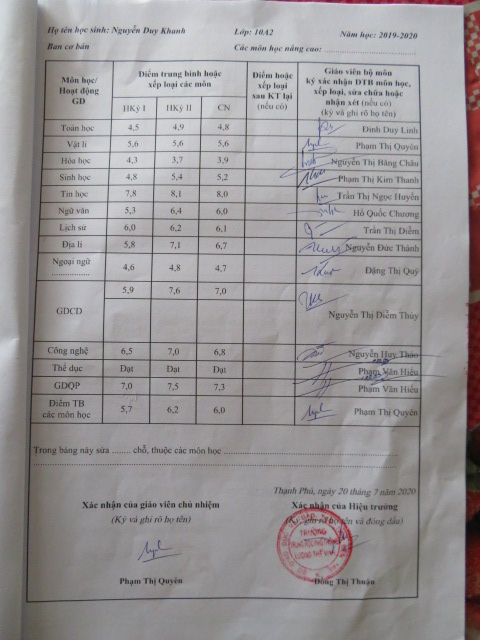 Họ tên học sinh: Nguyễn Duy Khanh Lớp: 10A2 Năm học: 2019-2020
Ban cơ bản Các môn học nâng cao: ............
Môn học/ Hoạt động GD Điểm trung bình hoặc xếp loại các môn Điểm hoặc xếp loại sau KT lại (nếu có) Giáo viên bộ môn ký xác nhận ĐTB môn học, xếp loại, sửa chữa hoặc nhận xét (nếu có) (ký và ghi rõ họ tên)
HKỳ I HKỳ II CN
Toán học 4,5 4,9 4,8 Đinh Duy Linh
Vật lí 5,6 5,6 5,6 Phạm Thị Quyên
Hóa học 4,3 3,7 3,9 Nguyễn Thị Băng Châu
Sinh học 4,8 5,4 5,2 Phạm Thị Kim Thanh
Tin học 7,8 8,1 8,0 Trần Thị Ngọc Huyền
Ngữ văn 5,3 6,4 6,0 Hồ Quốc Chương
Lịch sử 6,0 6,2 6,1 Trần Thị Diễm
Địa lí 5,8 7,1 6,7 Nguyễn Đức Thành
Ngoại ngữ ............ 4,6 4,8 4,7 Đặng Thị Quý
GDCD 5,9 7,6 7,0 Nguyễn Thị Diễm Thúy
Công nghệ 6,5 7,0 6,8 Nguyễn Huy Thảo
Thể dục Đạt Đạt Đạt Phạm Văn Hiếu
GDQP 7,0 7,5 7,3 Phạm Văn Hiếu
Điểm TB các môn học 5,7 6,2 6,0 Phạm Thị Quyên
Trong bảng này sửa ........ chỗ, thuộc các môn học ............
Thạnh Phú, ngày 20 tháng 7 năm 2020
Xác nhận của giáo viên chủ nhiệm Xác nhận của Hiệu trưởng
(Ký và ghi rõ họ tên) (Ký, ghi rõ họ tên và đóng dấu)
TRƯỜNG
Phạm Thị Quyên Đồng Thị Thuận